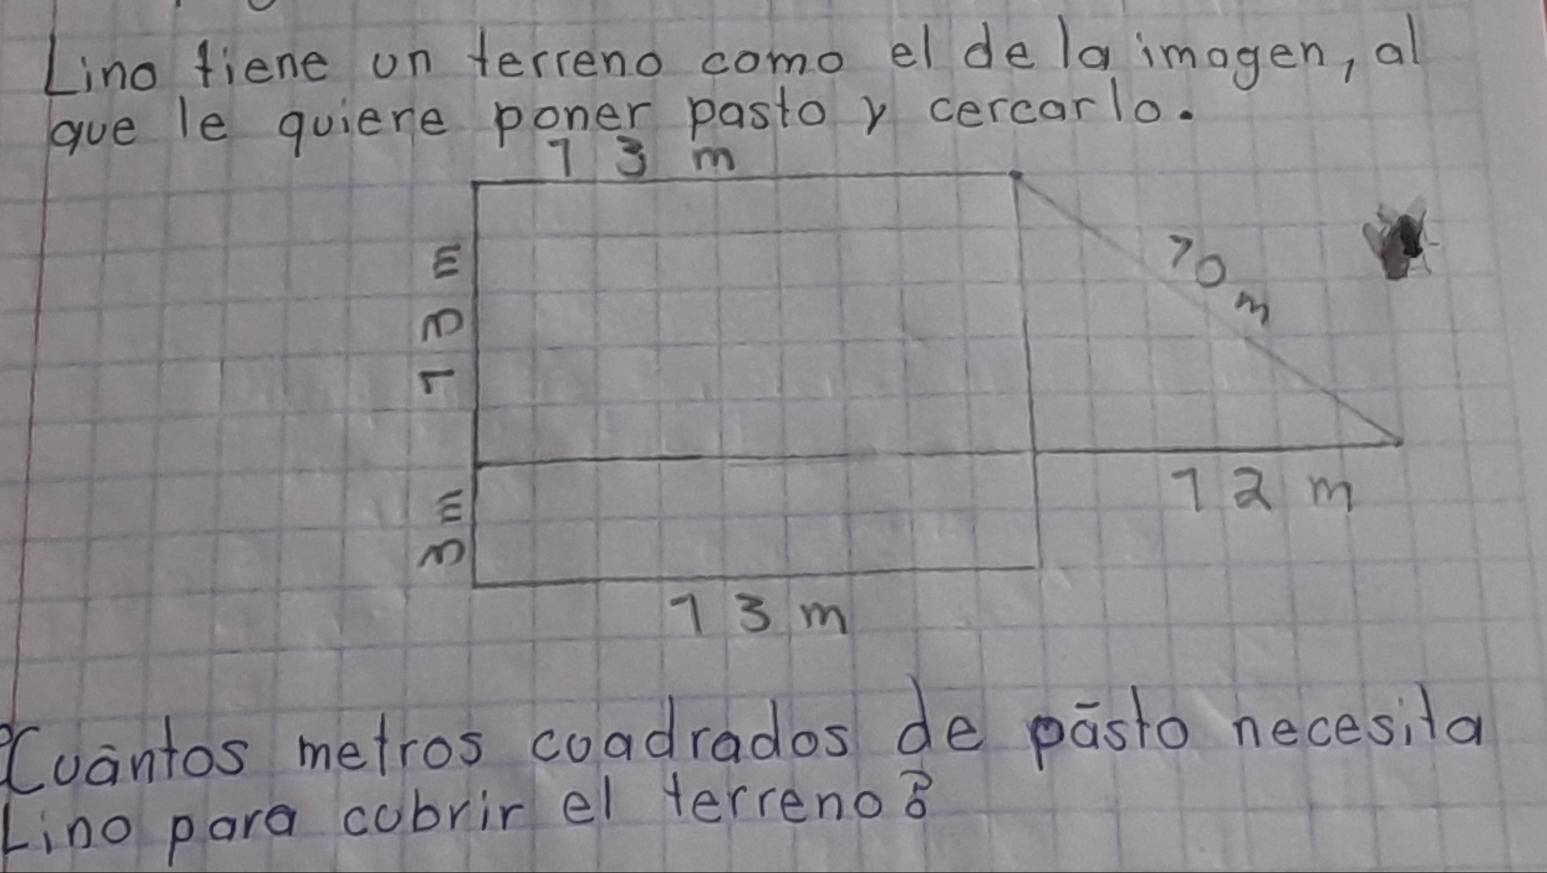 Lino tiene un terreno como el de la imagen, al
que le quiere poner pasto y cercarlo.
13 m
13 m
10 m
3 m
12 m
13 m
¿Cuántos metros cuadrados de pāsto necesita
Lino para cubrir el terreno?